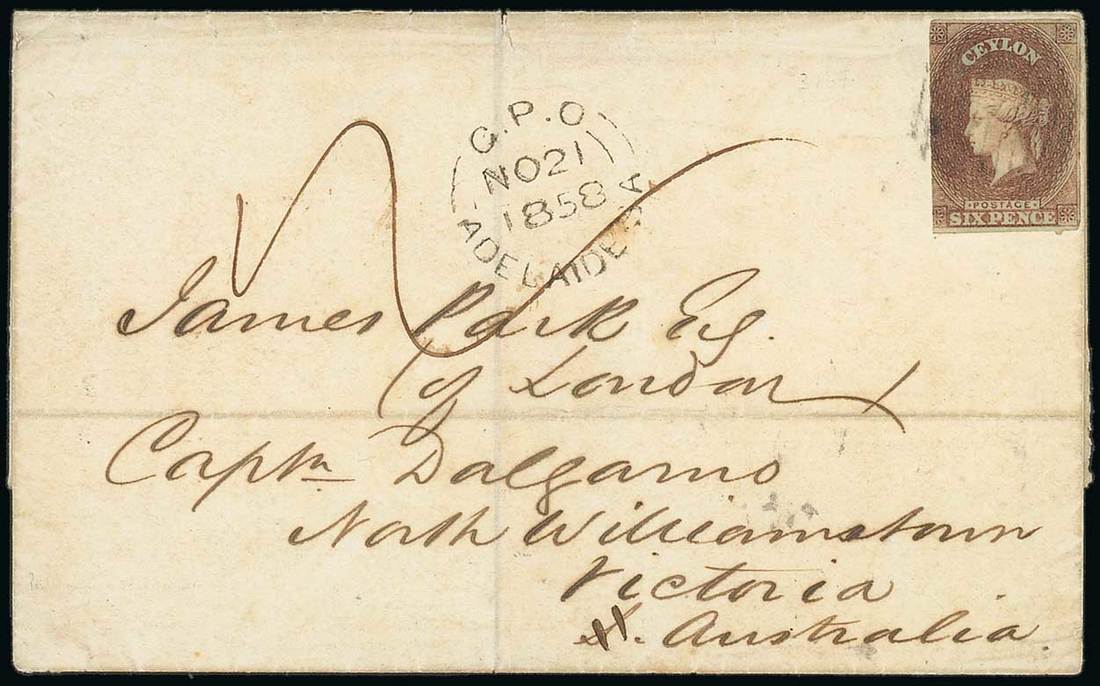 CEYLON
POSTAGE
SIX PENCE
G.P.O
NO 21
1858
ADELAIDE S.A
James Park Esq.
(of London)
Captn Dalgarno
North Williamstown
Victoria
S. Australia